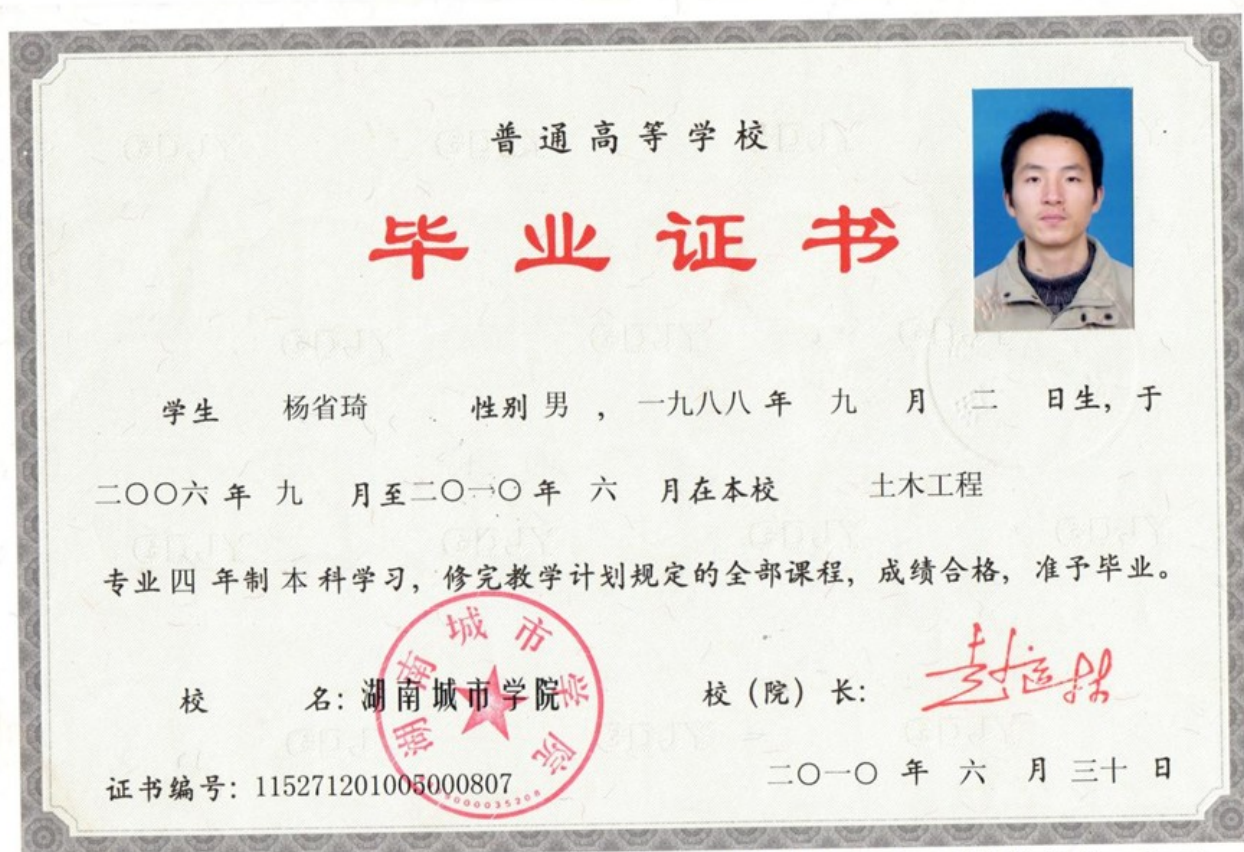 普通高等学校
毕业证书
学生 杨省琦 性别 男 ,一九八八 年 九 月 二 日生, 于
二〇〇六 年 九 月至 二〇一〇 年 六 月在本校 土木工程
专业 四 年制 本 科学习, 修完教学计划规定的全部课程, 成绩合格, 准予毕业。
校 名: 湖南城市学院 校 (院) 长:
湖南城市学院
证书编号: 115271201005000807 二〇一〇 年 六 月 三十 日